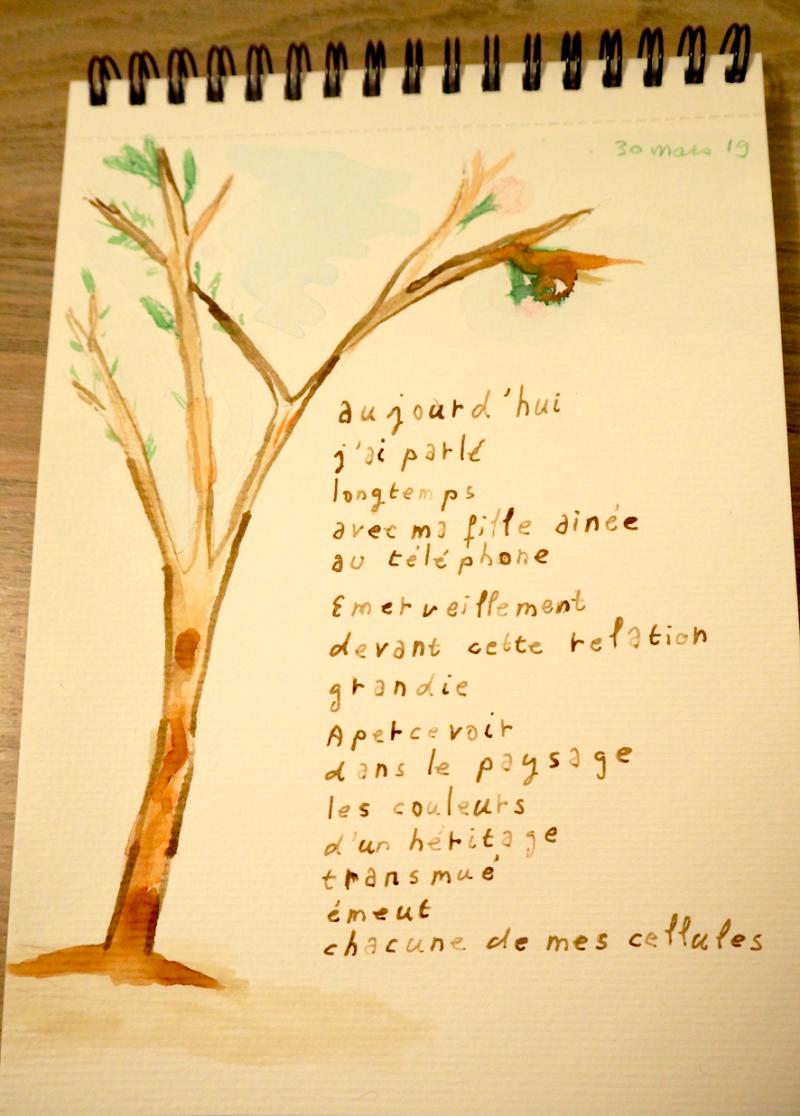 30 mars 19
aujourd'hui
j'ai parlé
longtemps
avec ma fille ainée
au téléphone
Emerveillement
devant cette relation
grandie
Apercevoir
dans le paysage
les couleurs
d'un héritage
transmué
émeut
chacune de mes cellules